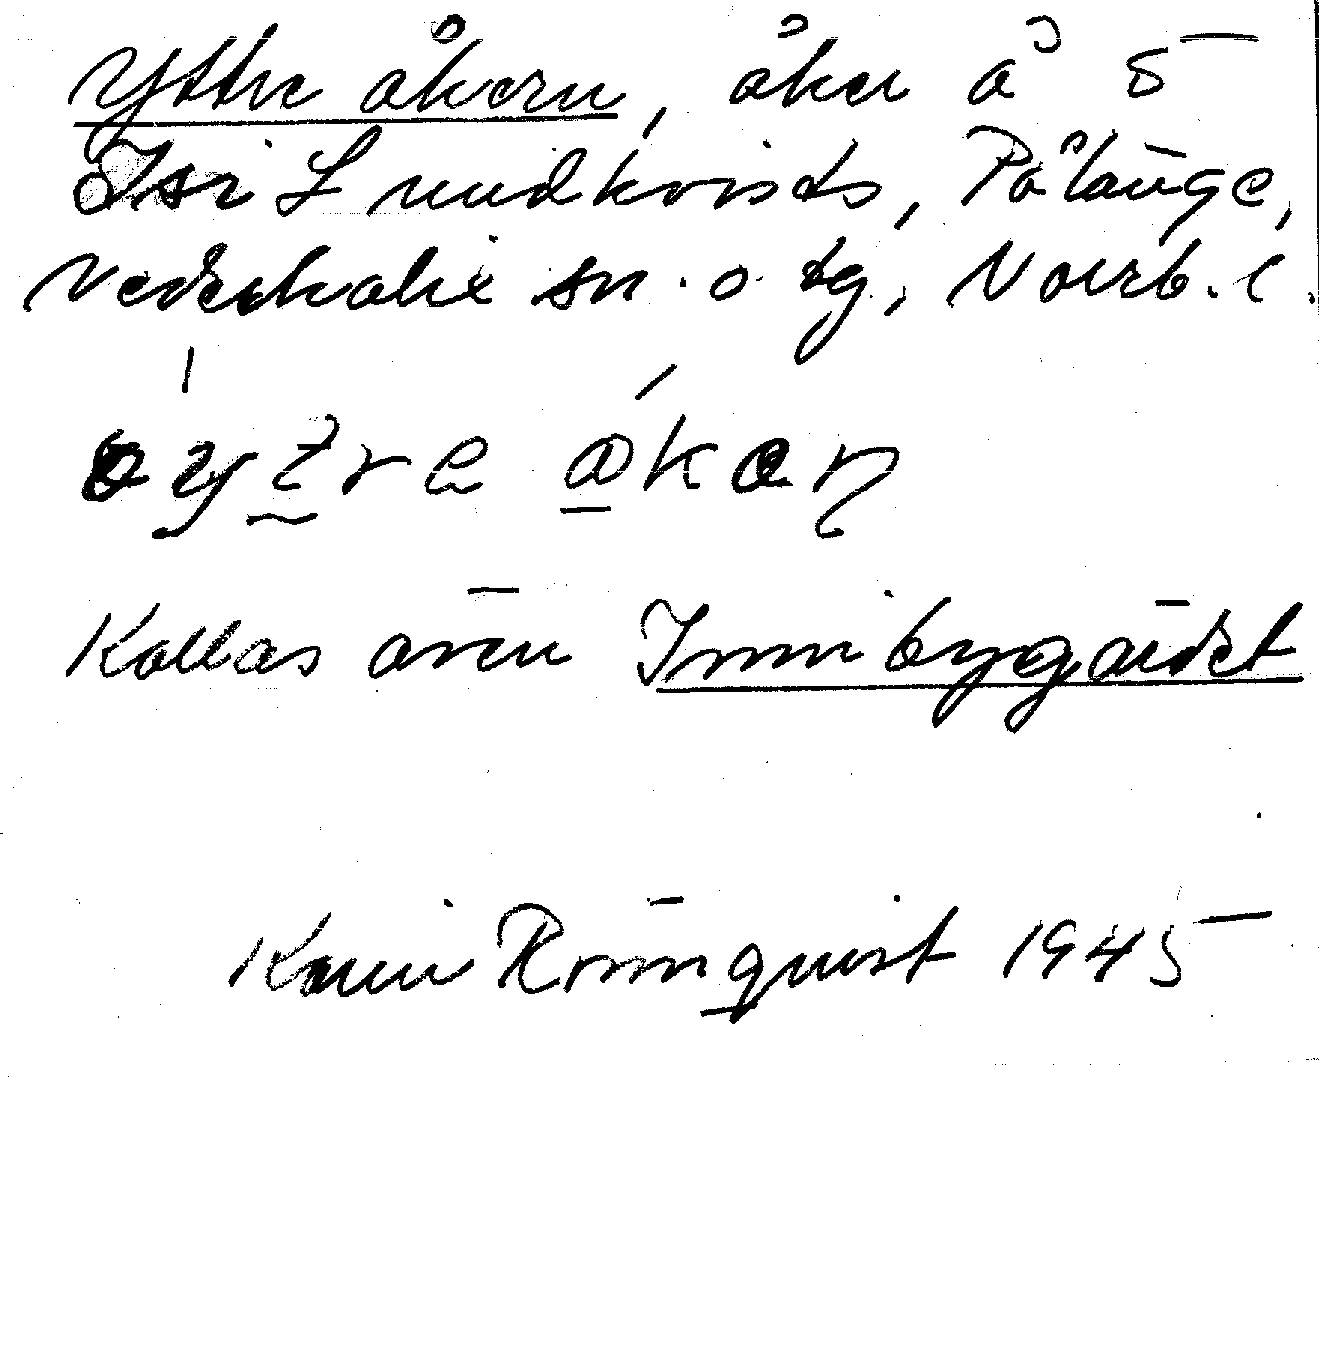 Yttre åkern, åker å 5
Isr Lundkvists, Pålänge,
Nederkalix sn. o. tg, Norrb. l.
öytre åkeɳ
Kallas även Innibygärdet
Karin Rönnquist 1945